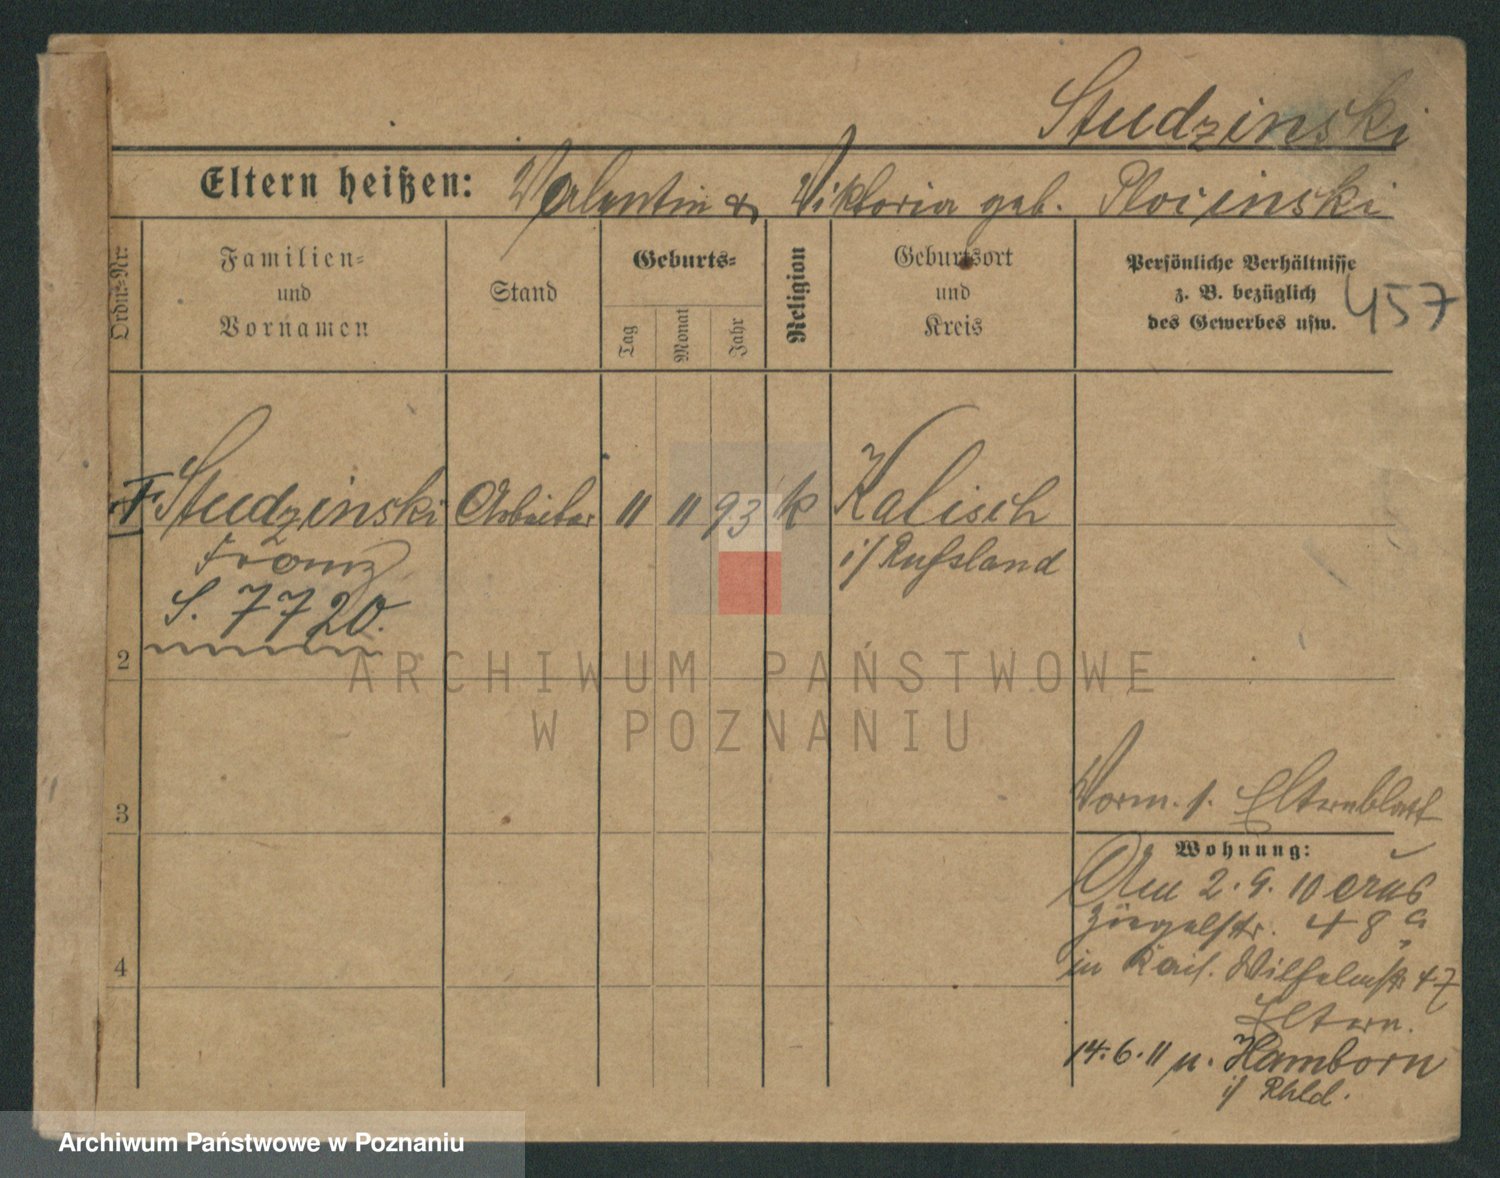 Studzinski
Eltern heißen: Valentin & Viktoria geb. Plocinski
Ordn.-Nr.
Familien-
und
Vornamen
Stand
Geburts-
Tag
Monat
Jahr
Religion
Geburtsort
und
Kreis
Persönliche Verhältnisse
z. B. bezüglich
des Gewerbes usw.
457
Studzinski Arbeiter 11 11 93 k Kalisch
Franz i/ Rußland
S. 7720.
2
ARCHIWUM PAŃSTWOWE
W POZNANIU
3
Vorm. s. Elternblatt
Wohnung:
Am 2. 9. 10 aus
Ziegelstr. 48a
in Kais. Wilhelmstr 47
Eltern.
4
14. 6. 11 n. Hamborn
i/ Rhld.
Archiwum Państwowe w Poznaniu